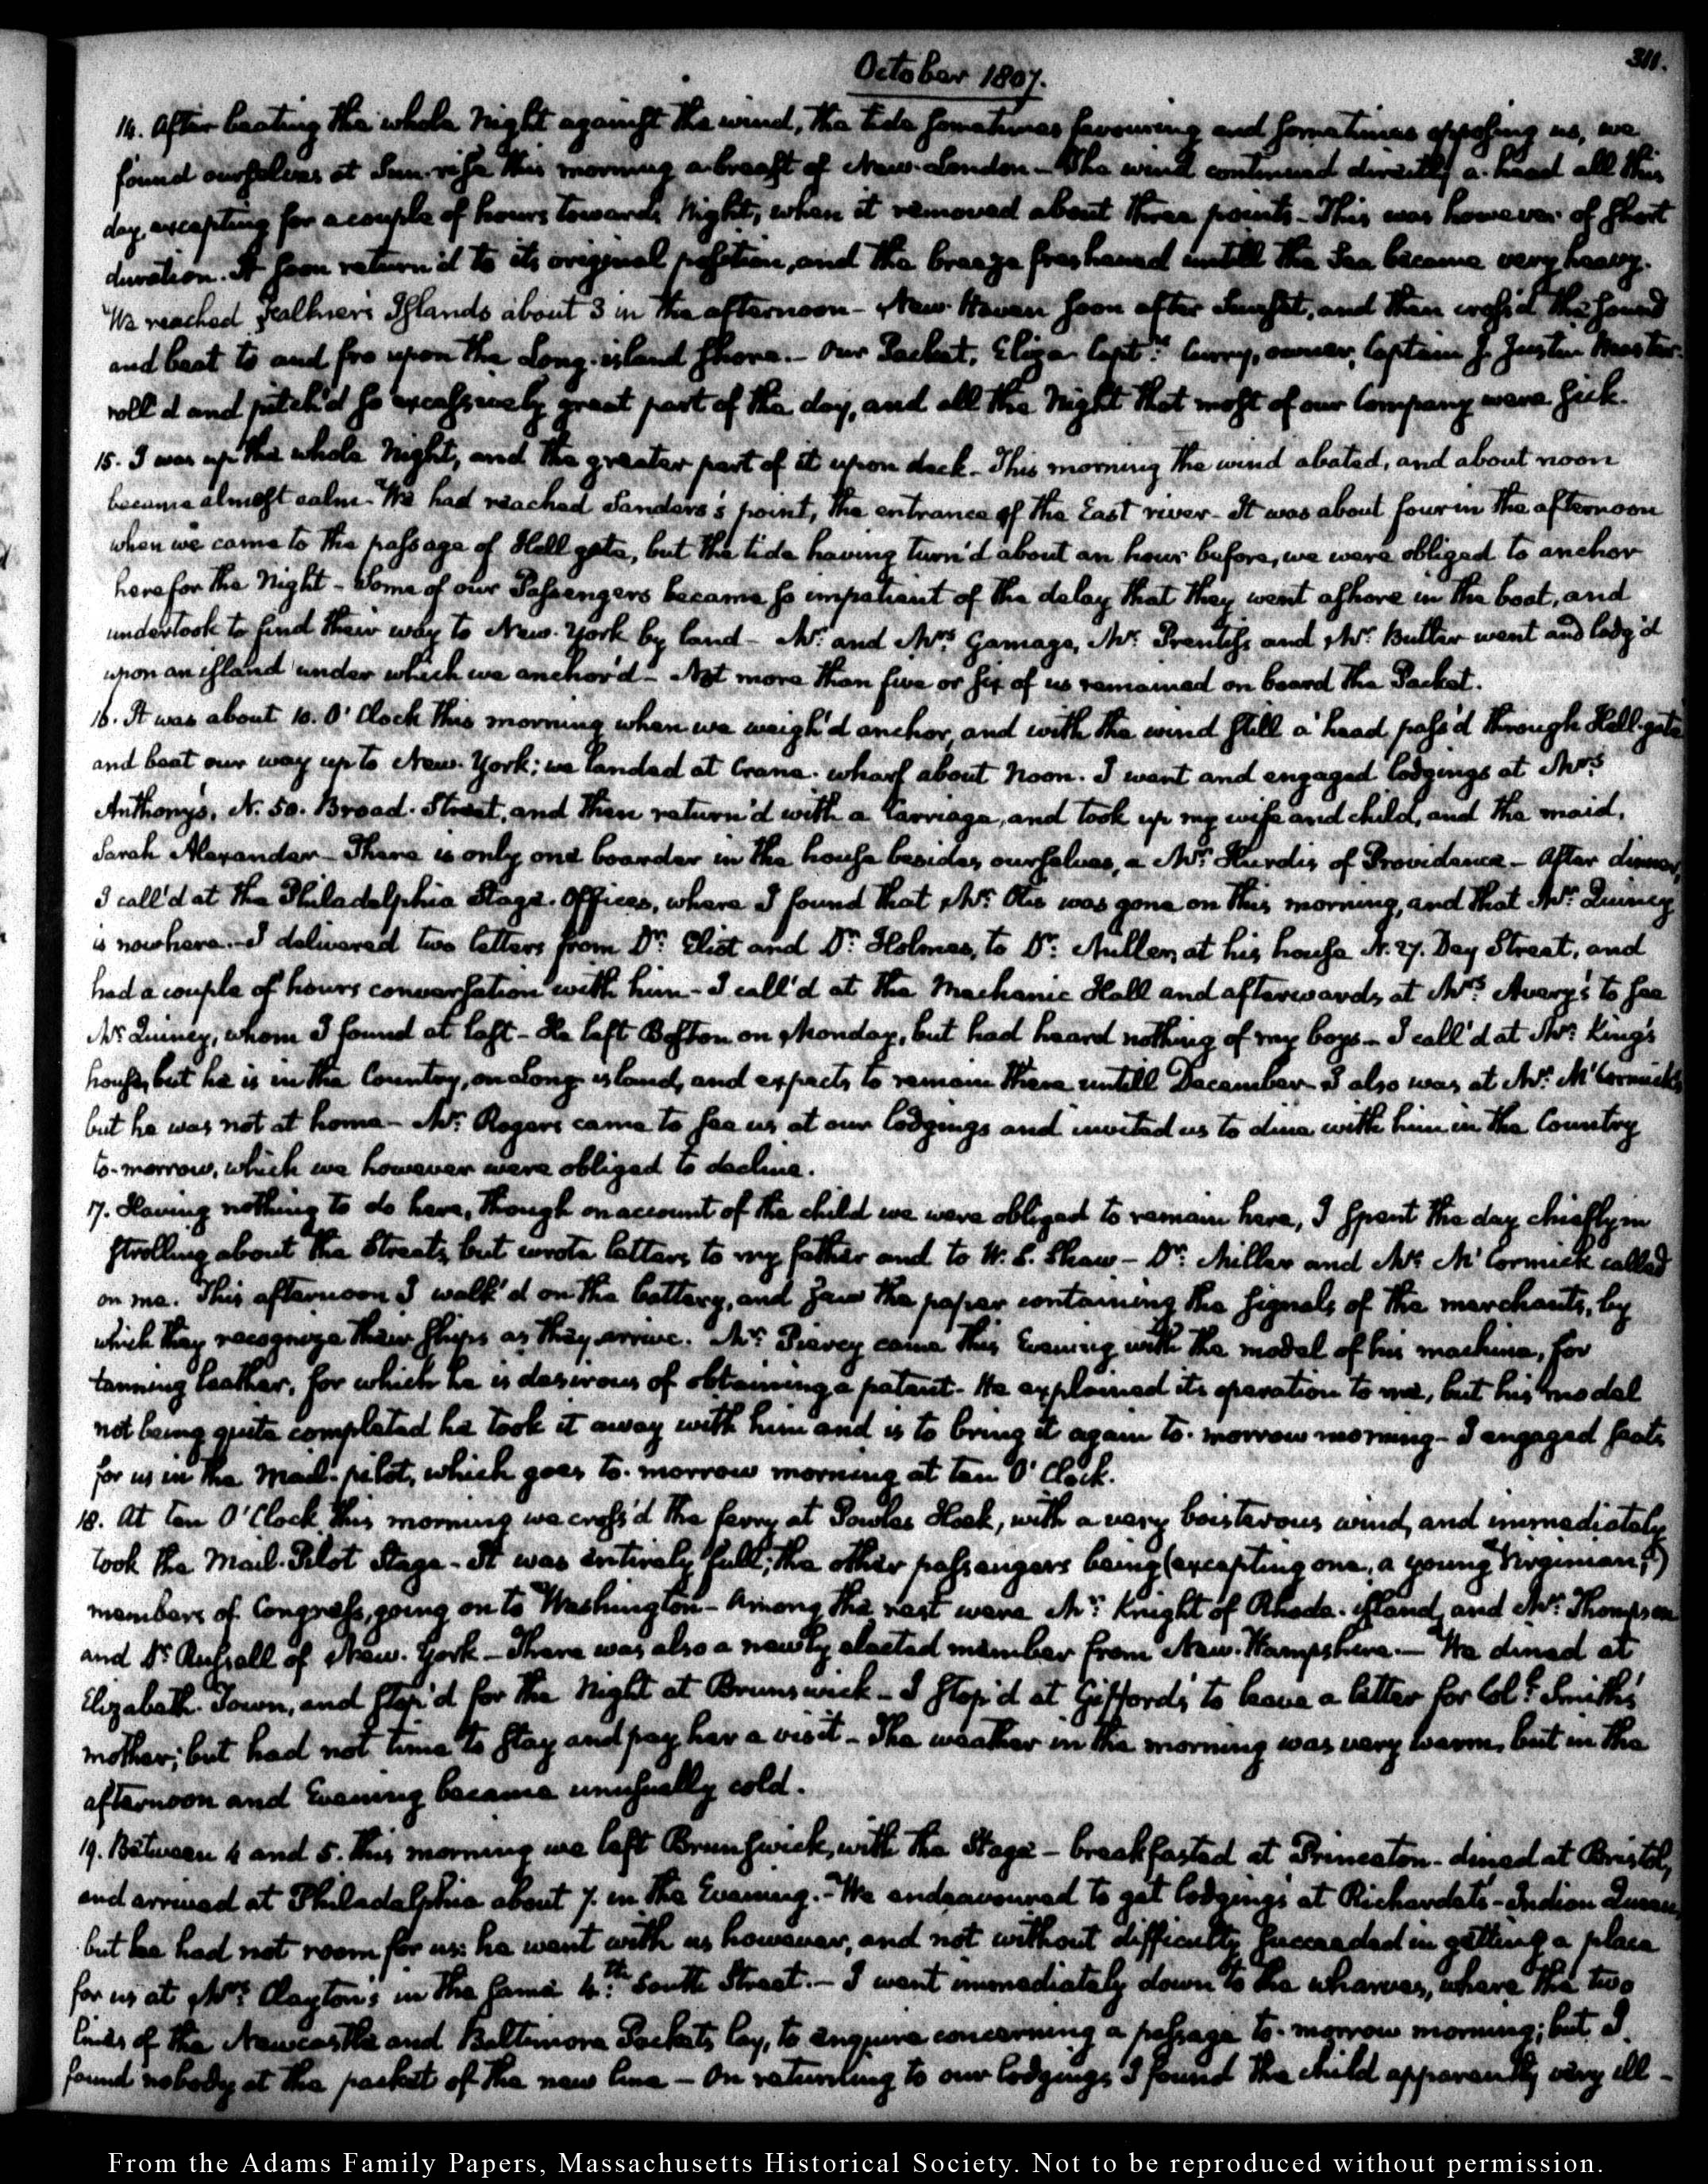 311.
October 1807.
14. After beating the whole Night against the wind, the tide sometimes favouring and sometimes opposing us, we
found ourselves at Sun-rise this morning a-breast of New-London - The wind continued directly a-head all this
day, excepting for a couple of hours towards Night, when it removed about three points - This was however of short
duration. It soon return'd to its original position, and the breeze freshened untill the Sea became very heavy.
We reached Falkner's Islands about 3 in the afternoon - New-Haven soon after Sunset, and then cross'd the Sound
and beat to and fro upon the Long-island shore. - Our Packet, Eliza Captn. Curry, owner, Captain J. Justin Master
roll'd and pitch'd so excessively great part of the day, and all the Night that most of our Company were sick.
15. I was up the whole Night, and the greater part of it upon deck - This morning the wind abated, and about noon
became almost calm - We had reached Sanders's point, the entrance of the East river - It was about four in the afternoon
when we came to the passage of Hell gate, but the tide having turn'd about an hour before, we were obliged to anchor
here for the Night - Some of our Passengers became so impatient of the delay that they went ashore in the boat, and
undertook to find their way to New-York by land - Mr. and Mrs. Gamage, Mr. Prentiss and Mr. Butler went and lodg'd
upon an island under which we anchor'd - Not more than five or six of us remained on board the Packet.
16. It was about 10. O'Clock this morning when we weigh'd anchor, and with the wind still a'head pass'd through Hell-gate
and beat our way up to New-York; we landed at Crane-wharf about Noon. I went and engaged lodgings at Mrs.
Anthony's, N. 50. Broad-Street, and then return'd with a Carriage, and took up my wife and child, and the maid,
Sarah Alexander - There is only one boarder in the house besides ourselves, a Mr. Hurdis of Providence - After dinner,
I call'd at the Philadelphia Stage-Offices, where I found that Mr. Otis was gone on this morning, and that Mr. Quincy
is now here. - I delivered two letters from Dr. Eliot and Dr. Holmes, to Dr. Miller, at his house N. 27. Dey Street, and
had a couple of hours conversation with him - I call'd at the Mechanic Hall and afterwards at Mrs. Avery's to see
Mr. Quincy, whom I found at last - He left Boston on Monday, but had heard nothing of my boys - I call'd at Mr. King's
house, but he is in the Country, on Long-island, and expects to remain there untill December - I also was at Mr. McCormick's
but he was not at home - Mr. Rogers came to see us at our lodgings and invited us to dine with him in the Country
to-morrow, which we however were obliged to decline.
17. Having nothing to do here, though on account of the child we were obliged to remain here, I spent the day chiefly in
strolling about the Streets, but wrote letters to my father and to W. S. Shaw - Dr. Miller and Mr. McCormick called
on me. This afternoon I walk'd on the battery, and saw the paper containing the signals of the merchants, by
which they recognize their ships as they arrive. Mr. Piercy came this Evening with the model of his machine, for
tanning leather, for which he is desirous of obtaining a patent - He explained its operation to me, but his model
not being quite completed he took it away with him and is to bring it again to-morrow morning - I engaged seats
for us in the Mail-pilot, which goes to-morrow morning at ten O'Clock.
18. At ten O'Clock this morning we cross'd the ferry at Powles Hook, with a very boisterous wind, and immediately
took the Mail-Pilot Stage - It was entirely full; the other passengers being (excepting one, a young Virginian,)
members of Congress, going on to Washington - Among the rest were Mr. Knight of Rhode-island, and Mr. Thompson
and Dr. Russell of New-York - There was also a newly elected member from New-Hampshire. - We dined at
Elizabeth-Town, and stop'd for the Night at Brunswick - I stop'd at Gifford's to leave a letter for Coll. Smith's
mother; but had not time to stay and pay her a visit - The weather in the morning was very warm, but in the
afternoon and Evening became unusually cold.
19. Between 4 and 5. this morning we left Brunswick, with the Stage - breakfasted at Princeton - dined at Bristol,
and arrived at Philadelphia about 7. in the Evening. - We endeavoured to get lodgings at Richardet's - Indian Queen,
but he had not room for us: he went with us however, and not without difficulty succeeded in getting a place
for us at Mrs. Clayton's in the same 4th. South Street. - I went immediately down to the wharves, where the two
lines of the Newcastle and Baltimore Packets lay, to enquire concerning a passage to-morrow morning; but I
found nobody at the packet of the new line - On returning to our lodgings I found the child apparently very ill -
From the Adams Family Papers, Massachusetts Historical Society. Not to be reproduced without permission.